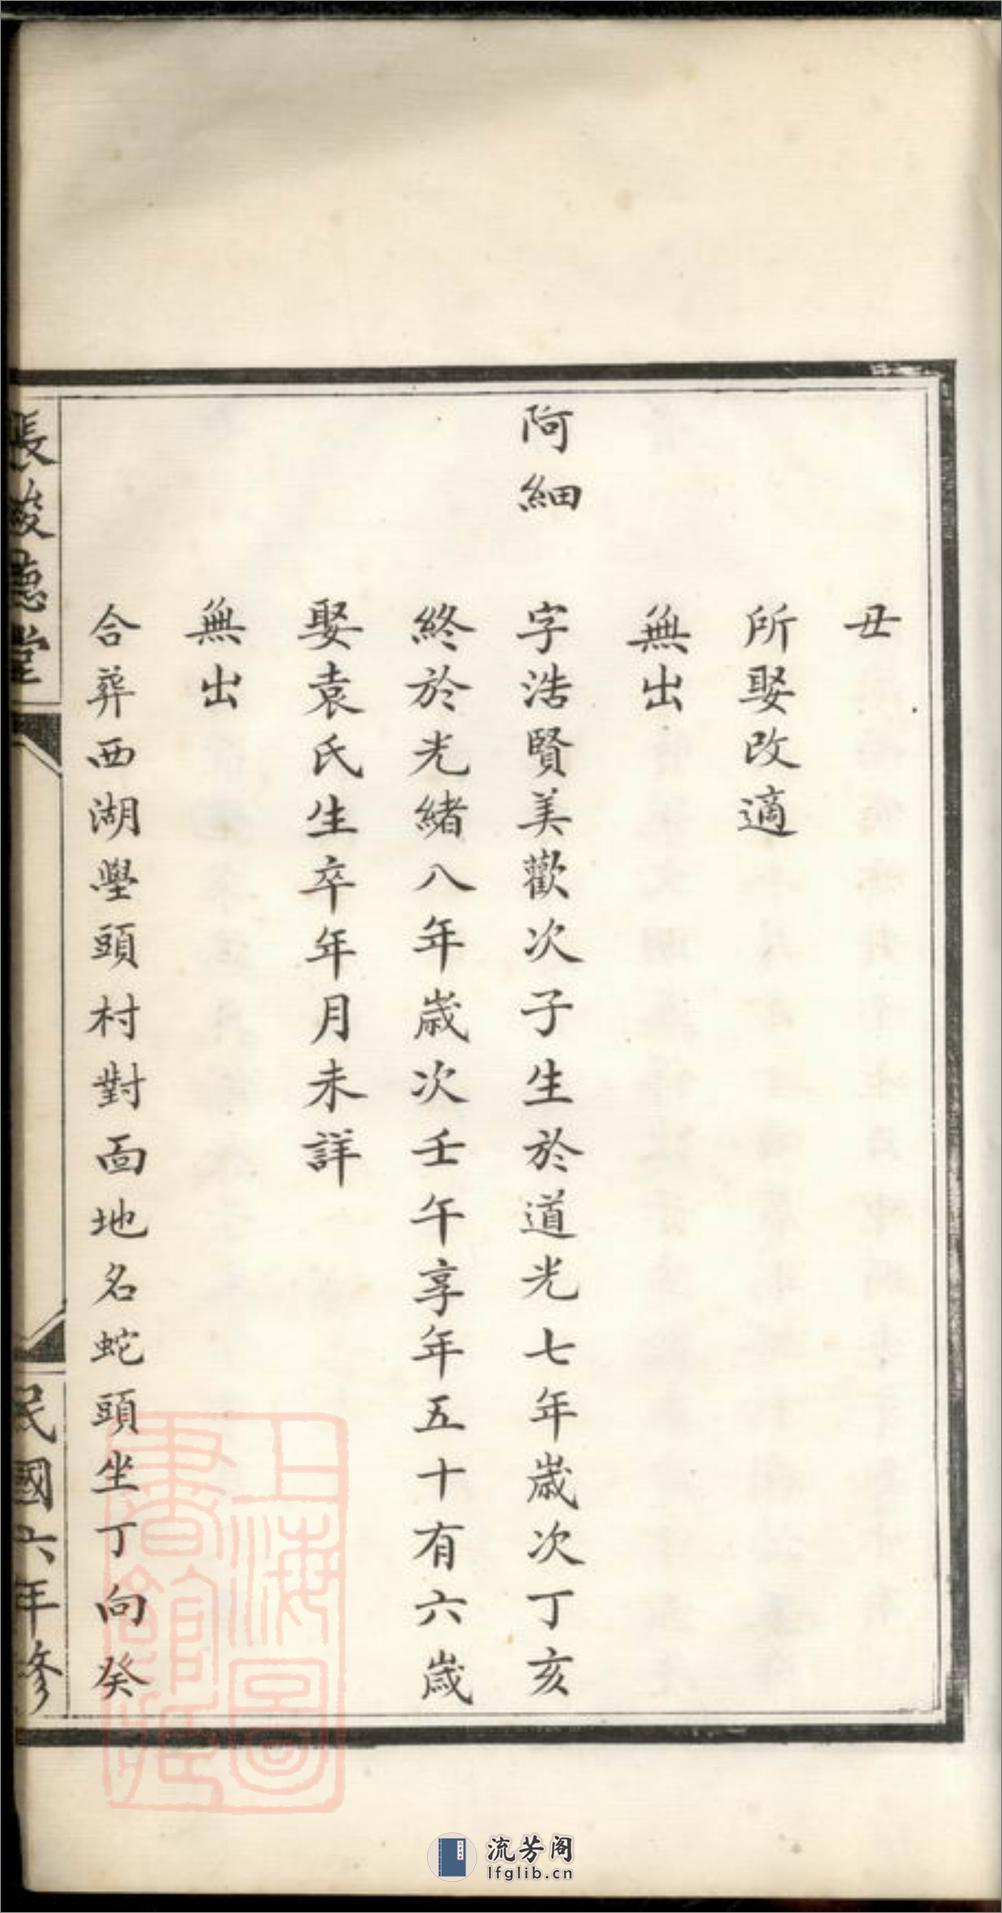 丑
所娶改適
無出
阿細 字浩賢美歡次子生於道光七年歲次丁亥
終於光緒八年歲次壬午享年五十有六歲
娶袁氏生卒年月未詳
無出
合葬西湖壆頭村對面地名蛇頭坐丁向癸
張崚德堂
民國六年修
上海圖書館藏
流芳阁
lfglib.cn